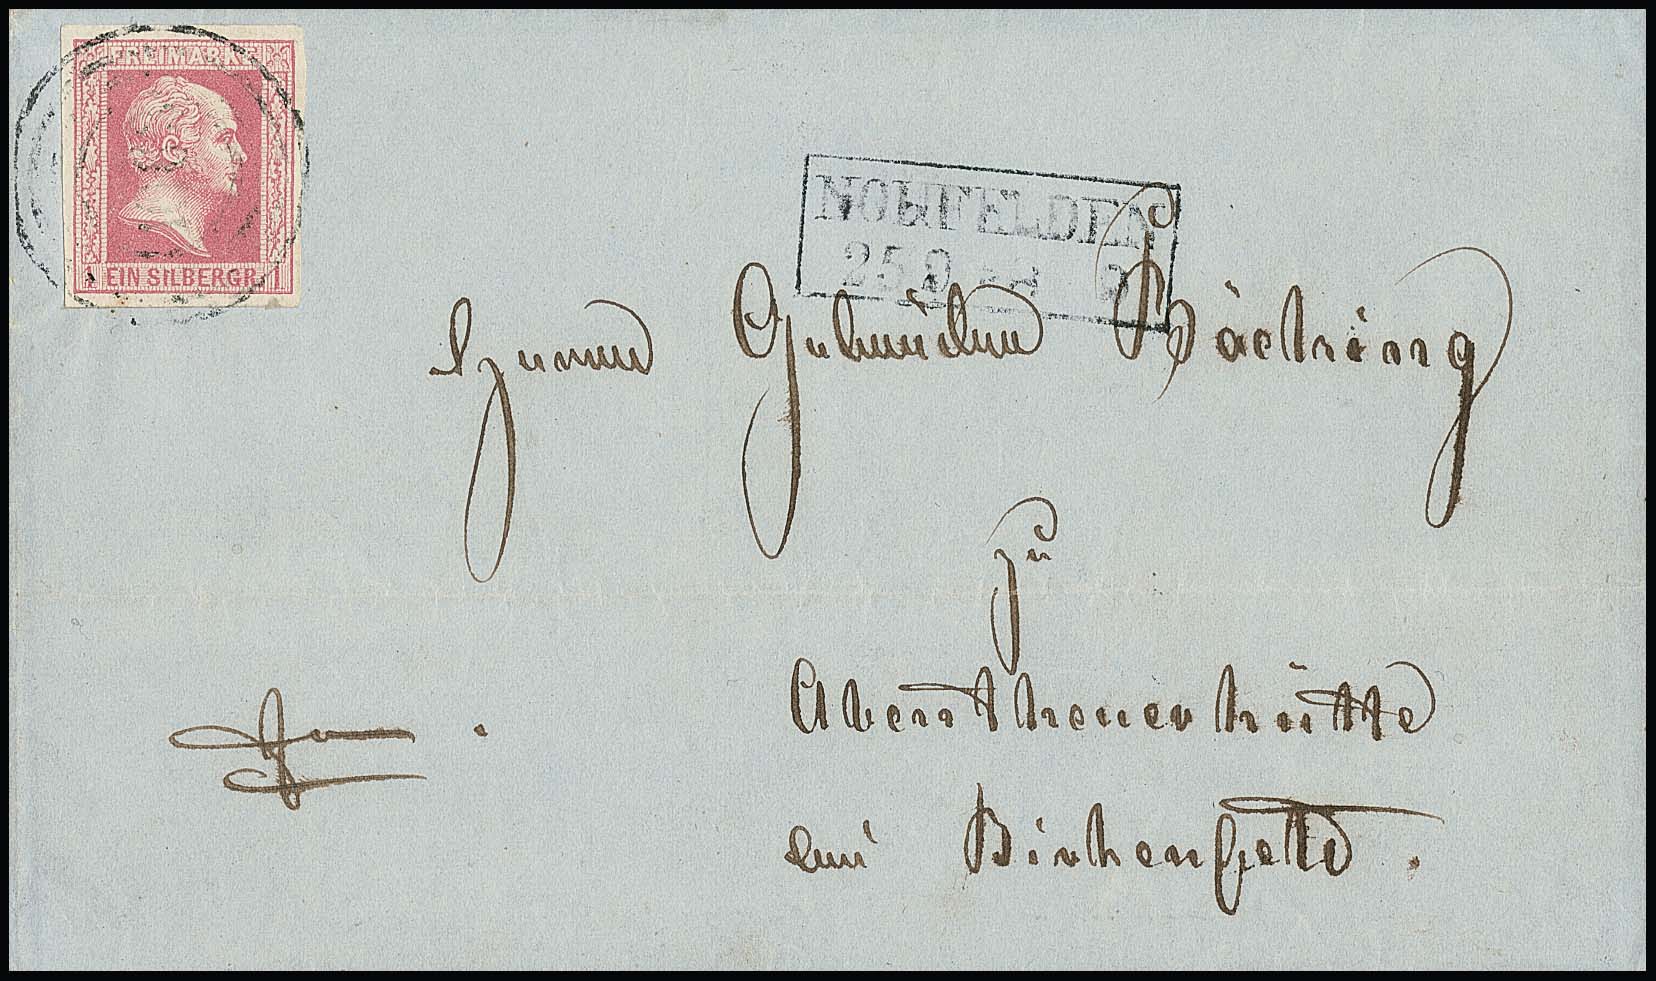 FREIMARKE
1 EIN SILBERGR. 1
NOHFELDEN
25 9
Herrn Gebrüder Böcking
zu
Abentheuerhütte
bei Birkenfeld.